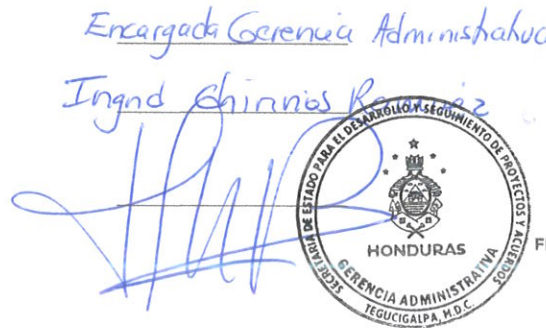 Encargada Gerencia Administrativa
Ingrid Chinnios Ramírez
SECRETARIA DE ESTADO PARA EL DESARROLLO Y SEGUIMIENTO DE PROYECTOS Y ACUERDOS
HONDURAS
GERENCIA ADMINISTRATIVA
TEGUCIGALPA, M.D.C.